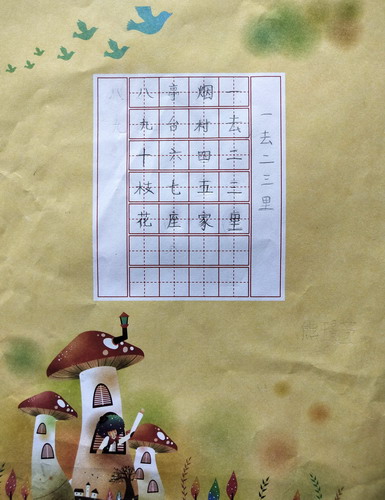 一去二三里
一去二三里
烟村四五家
亭台六七座
八丸十枝花